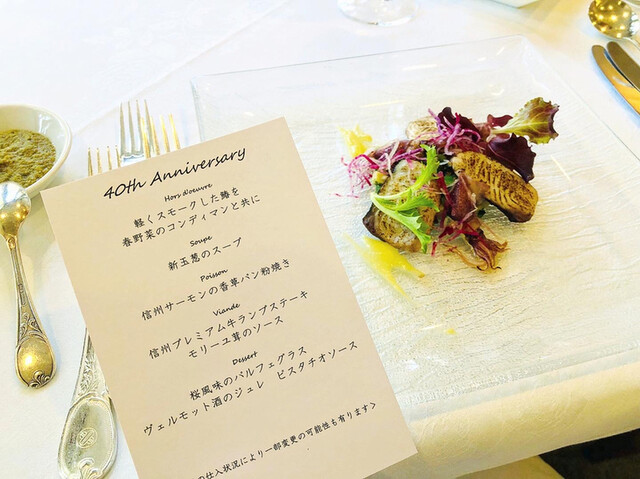 40th Anniversary
Hors d'oeuvre
軽くスモークした鰆を
春野菜のコンディマンと共に
Soupe
新玉葱のスープ
Poisson
信州サーモンの香草パン粉焼き
Viande
信州プレミアム牛ランプステーキ
モリーユ茸のソース
Dessert
桜風味のパルフェグラス
ヴェルモット酒のジュレ ピスタチオソース
の仕入状況により一部変更の可能性も有ります>